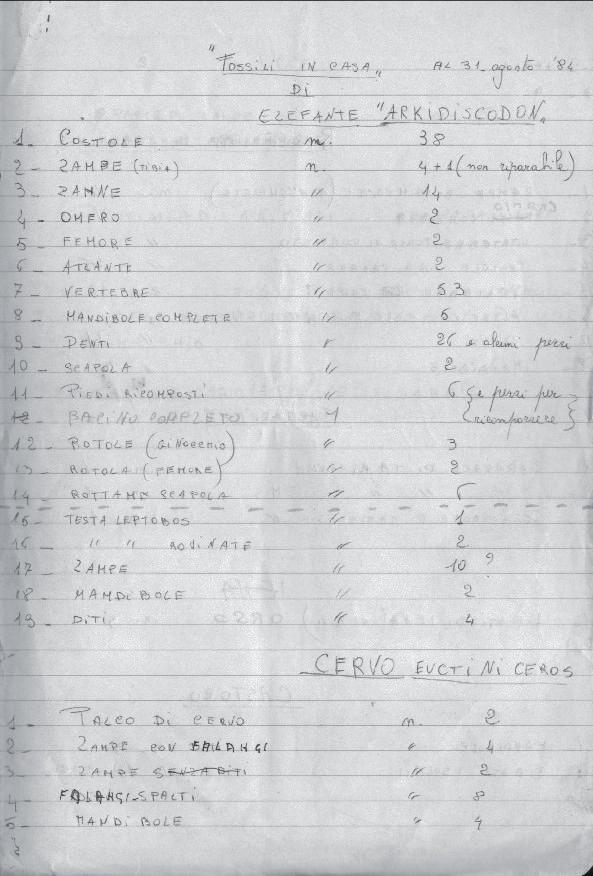 "FOSSILI IN CASA" AL 31 agosto '84
DI
ELEFANTE "ARKIDISCODON"
1- COSTOLE m. 38
2- ZAMPE (TIBIA) n. 4+1 (non riparabile)
3- ZANNE " 14
4- OMERO " 2
5- FEMORE " 2
6- ATLANTE " 2
7- VERTEBRE " 53
8- MANDIBOLE COMPLETE 6
9- DENTI " 26 e alcuni pezzi
10- SCAPOLA " 2
11- PIEDI RICOMPOSTI " 6 {e pezzi per
12 BACINO COMPLETO 1 ricomporre}
12- ROTOLE (GINOCCHIO) " 3
13- ROTOLA (FEMORE) " 2
14 ROTTAME SCAPOLA "
15- TESTA LEPTOBOS " 1
16- " " ROVINATE " 2
17- ZAMPE " 10 ?
18- MANDIBOLE " 2
19- DITI " 4
CERVO EUCTINICEROS
1- PALCO DI CERVO n. 2
2- ZAMPE CON FALANGI " 4
3- ZAMPE SENZA DITI " 2
4- FALANGI-SPALTI " 8
5- MANDIBOLE " 4